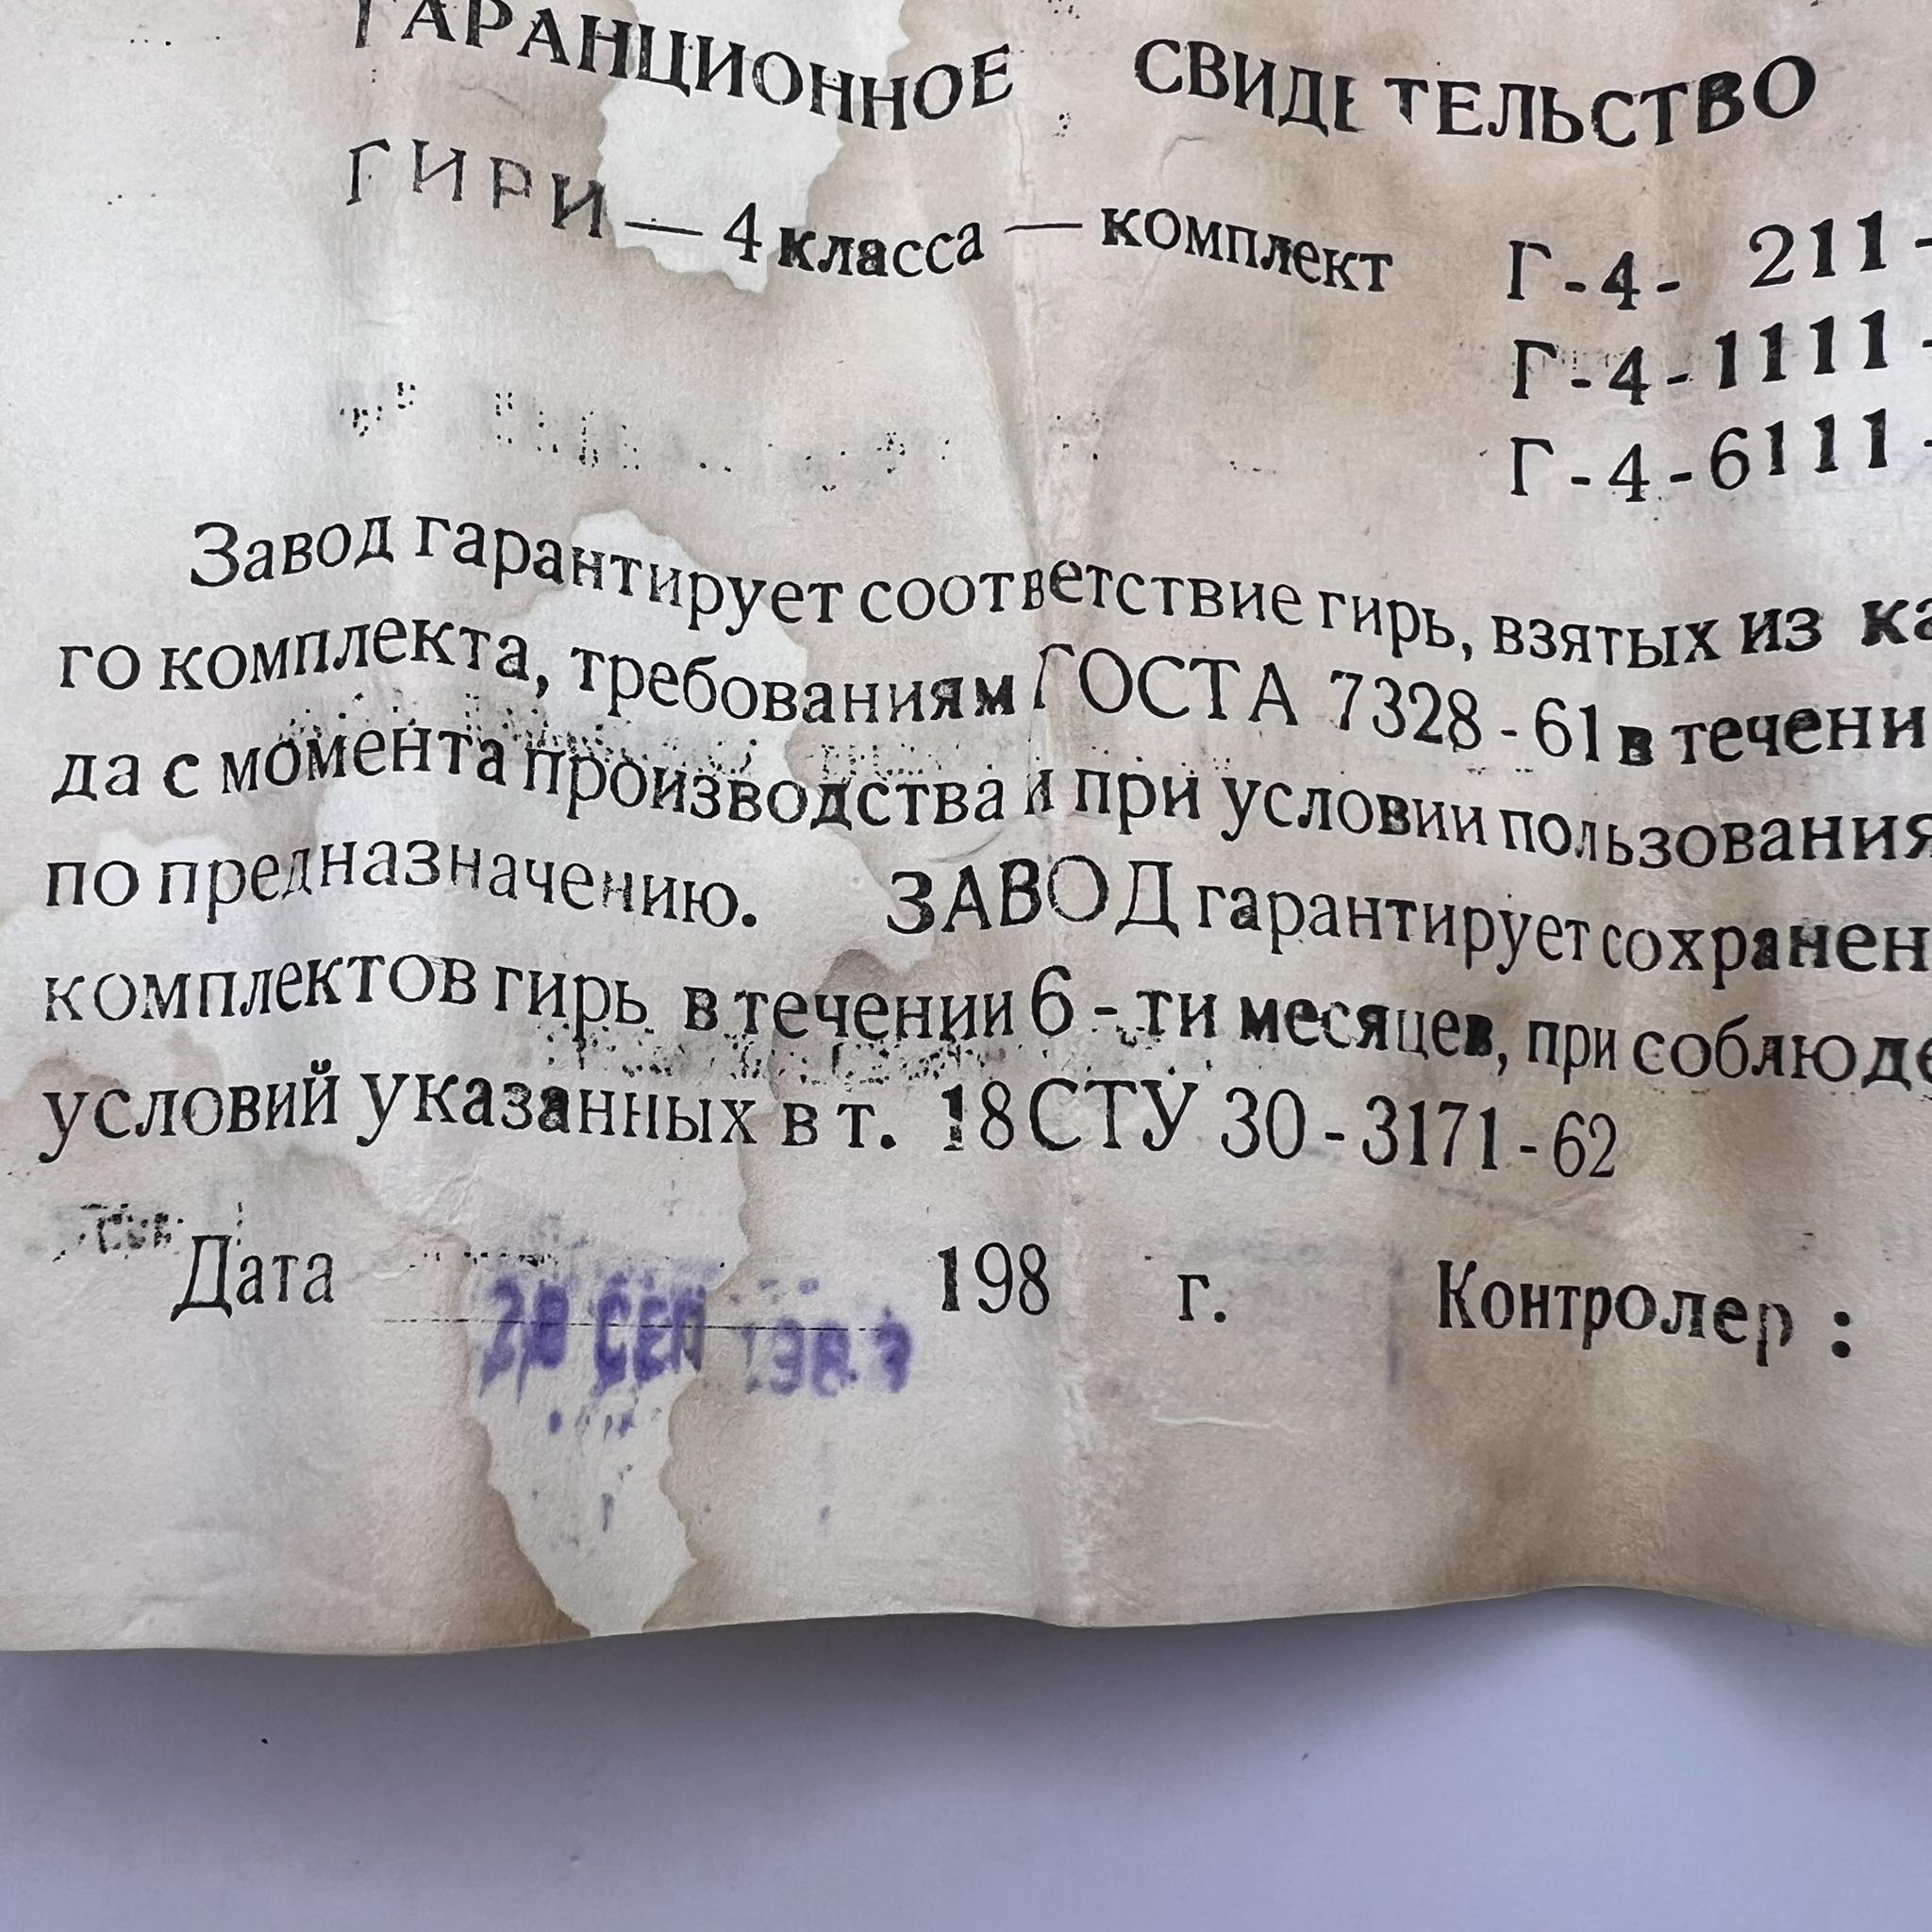 ГАРАНЦИОННОЕ СВИДЕТЕЛЬСТВО
ГИРИ — 4 класса — комплект Г-4- 211-
Г-4-1111-
Г-4-6111-
Завод гарантирует соответствие гирь, взятых из ка
го комплекта, требованиям ГОСТА 7328-61 в течени
да с момента производства и при условии пользования
по предназначению. ЗАВОД гарантирует сохранен
комплектов гирь в течении 6-ти месяцев, при соблюде
условий указанных в т. 18 СТУ 30-3171-62
Дата СЕП 198 г. Контролер :